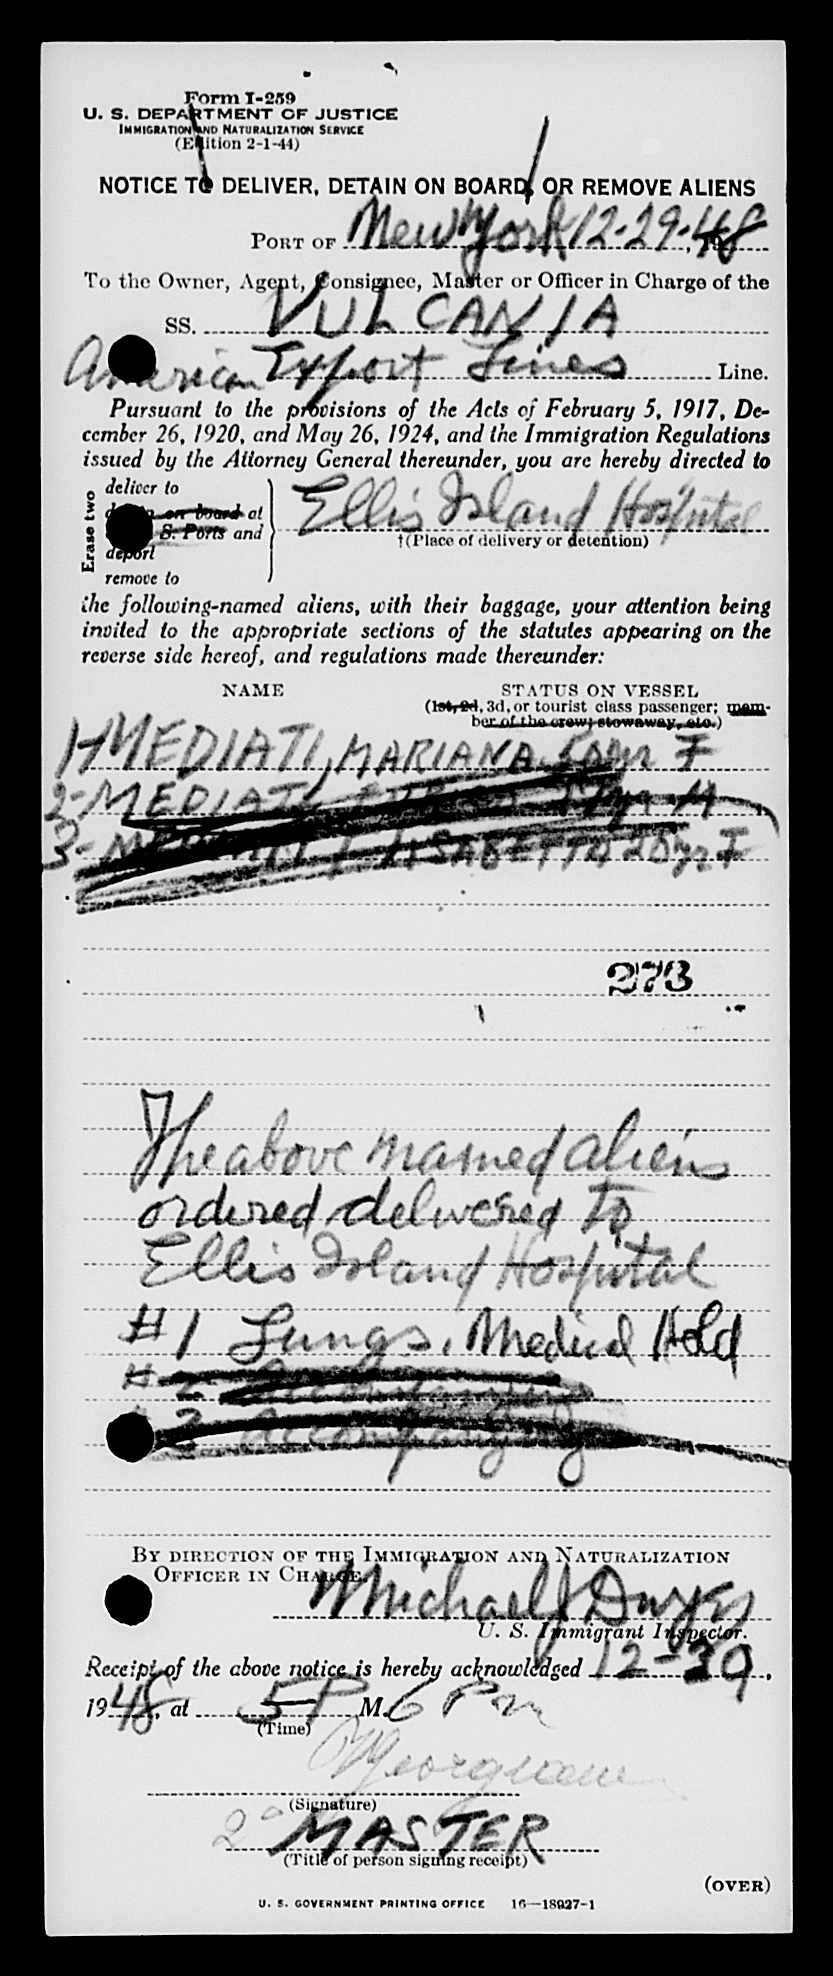 Form I-259
U. S. DEPARTMENT OF JUSTICE
IMMIGRATION AND NATURALIZATION SERVICE
(Edition 2-1-44)
NOTICE TO DELIVER, DETAIN ON BOARD, OR REMOVE ALIENS
PORT OF New York 12-29-48
To the Owner, Agent, Consignee, Master or Officer in Charge of the
SS. VULCANIA
American Export Lines Line.
Pursuant to the provisions of the Acts of February 5, 1917, De-
cember 26, 1920, and May 26, 1924, and the Immigration Regulations
issued by the Attorney General thereunder, you are hereby directed to
Erase two
deliver to
on board at
S. Ports and
deport
remove to
Ellis Island Hospital
†(Place of delivery or detention)
the following-named aliens, with their baggage, your attention being
invited to the appropriate sections of the statutes appearing on the
reverse side hereof, and regulations made thereunder:
NAME STATUS ON VESSEL
(1st, 2d, 3d, or tourist class passenger; mem-
ber of the crew; stowaway, etc.)
1-MEDIATI, MARIANA F
2-MEDIATI M
3- ELISABETTA F
273
The above named aliens
ordered delivered to
Ellis Island Hospital
#1 Lungs. Medical Hold
#2 Accompanying
3 Accompanying
BY DIRECTION OF THE IMMIGRATION AND NATURALIZATION
OFFICER IN CHARGE.
Michael J Dwyer
U. S. Immigrant Inspector.
Receipt of the above notice is hereby acknowledged 12-29,
1948, at 5 P M. 6 Pm
(Time)
(Signature)
2° MASTER
(Title of person signing receipt)
(OVER)
U. S. GOVERNMENT PRINTING OFFICE 16—18927-1